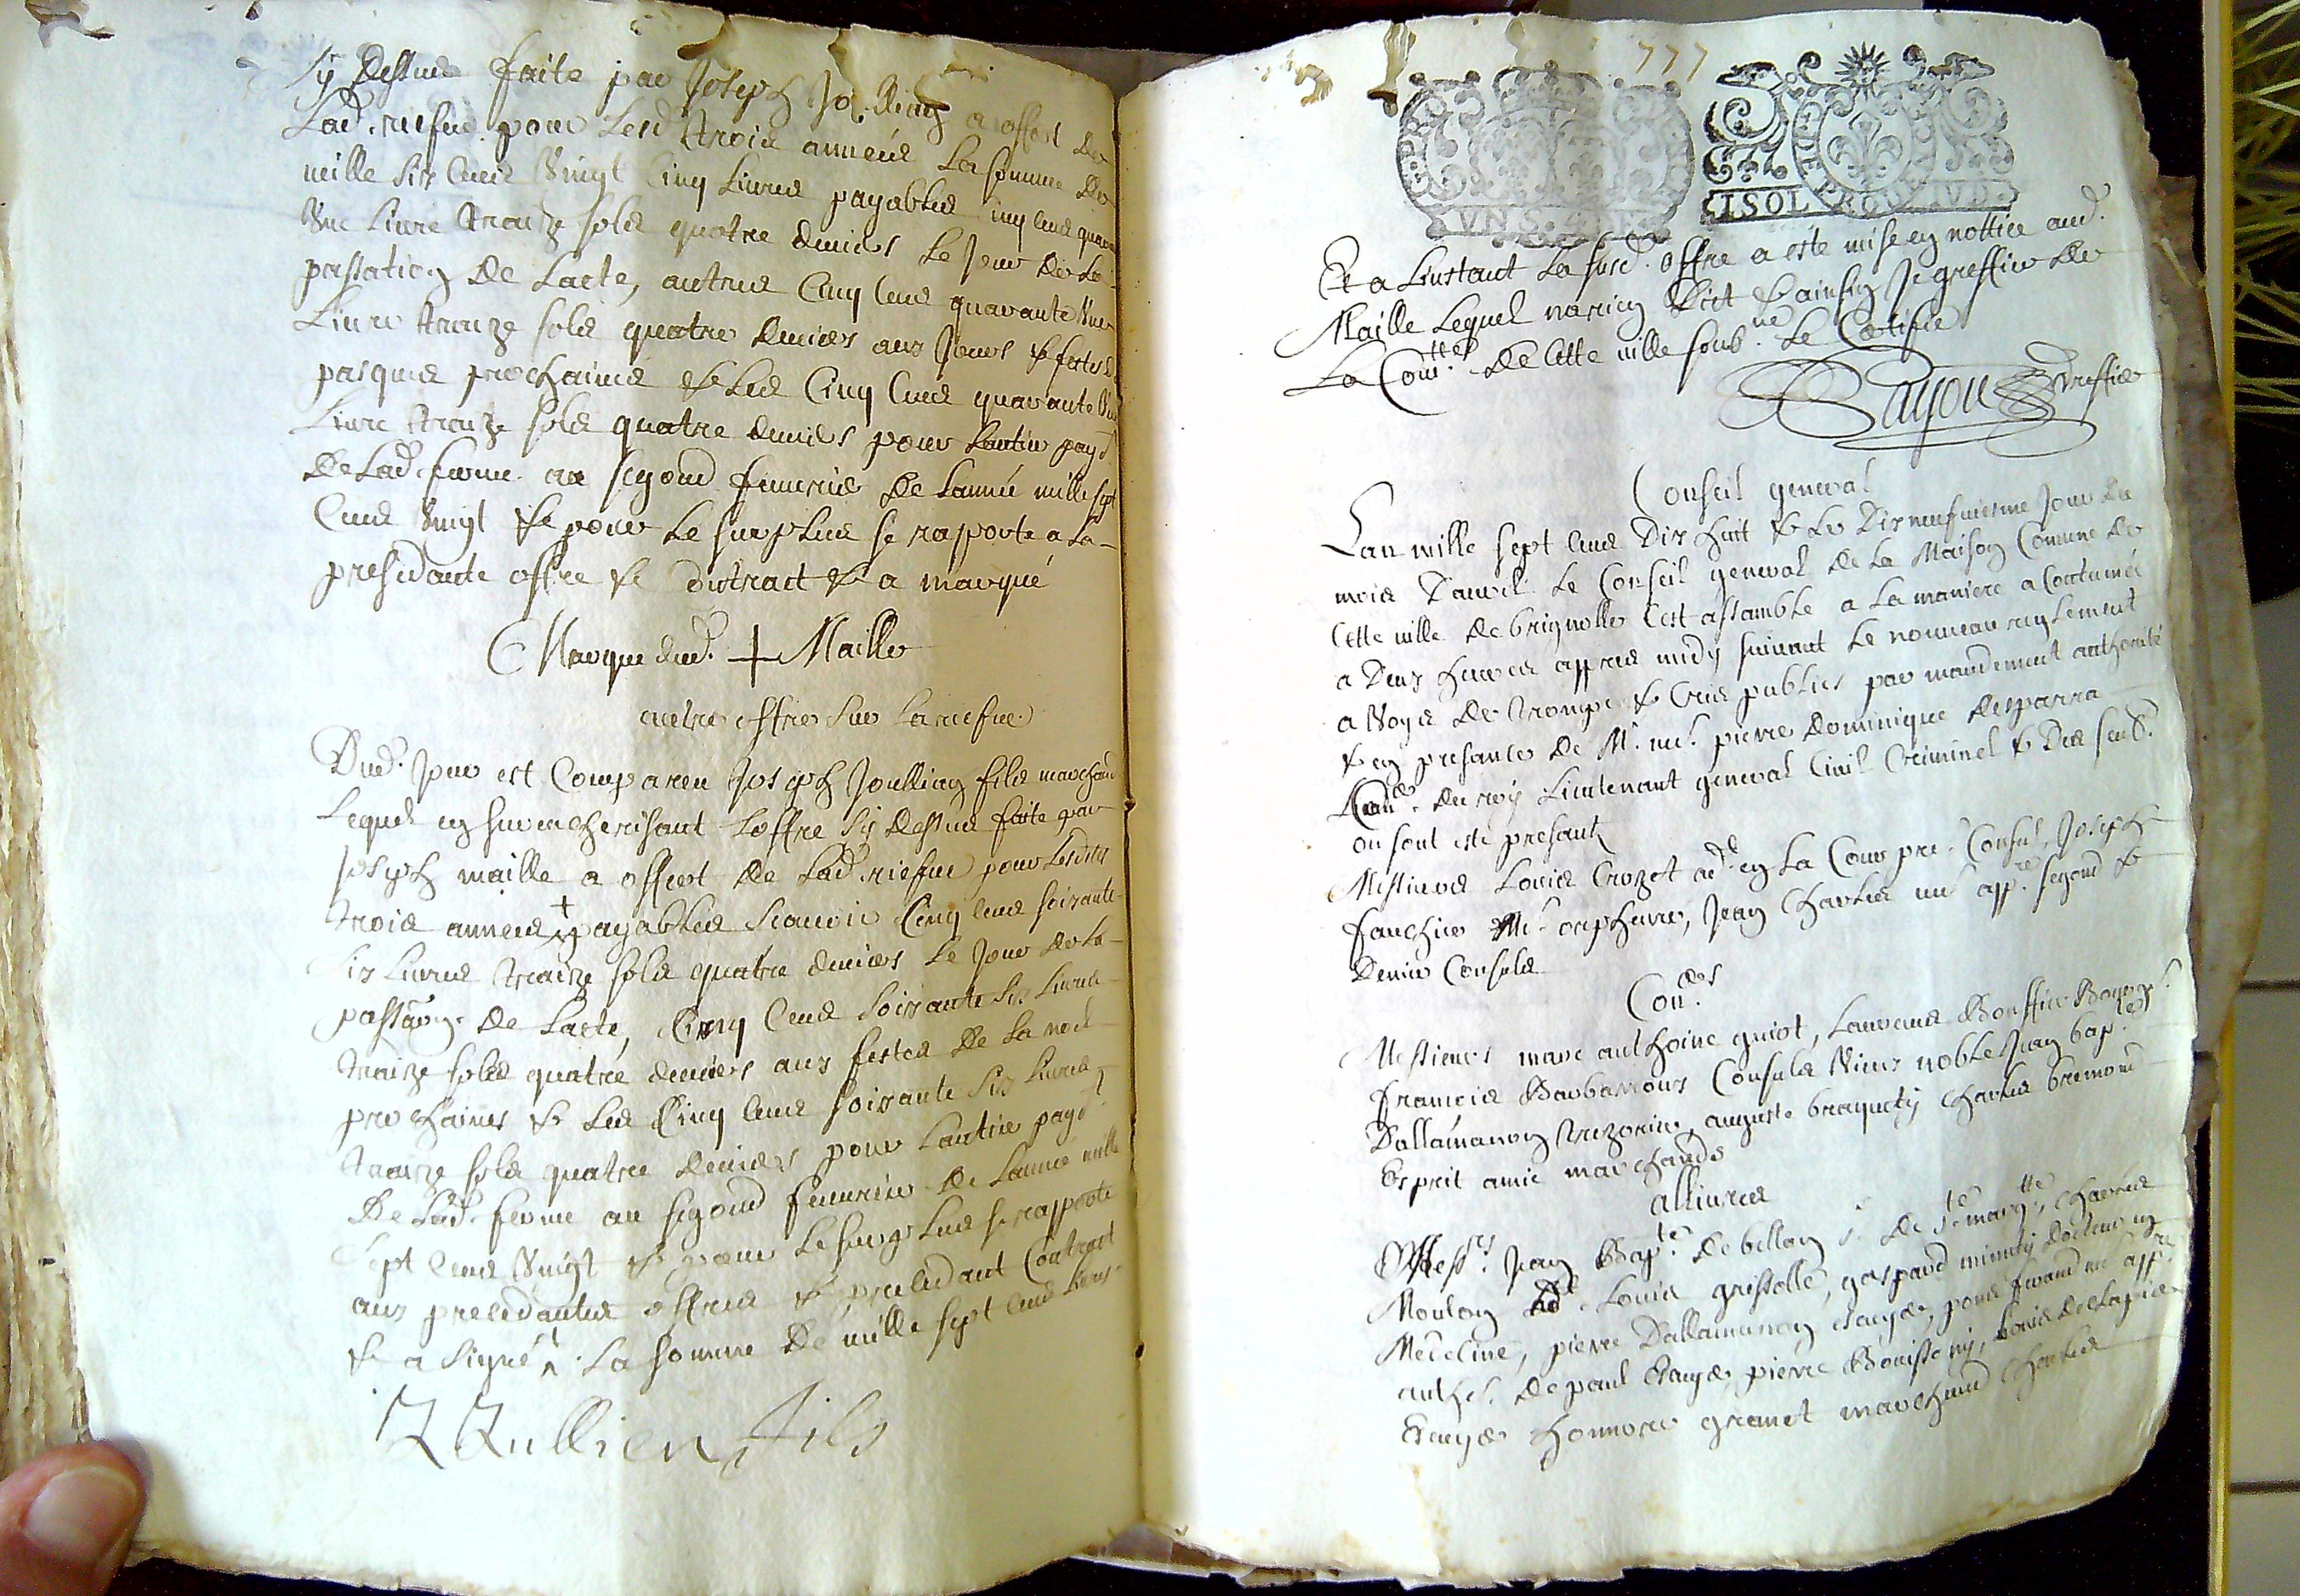 sy dessus faite par Joseph Joullien a offert de
Lad. riefve pour lesd. trois années La somme de
mille six cens vingt cinq Livres payables cinq cens quarante
une Livre treize sols quatre deniers le Jour de La
passation de Lacte, autres Cinq cens quarante une
Livre treize sols quatre deniers aux Jours & festes de
pasques prochaines & les Cinq cens quarante une
Livre treize sols quatre deniers pour Lantier payt.
De Lad. ferme au segond fevrier de Lannée mille sept
Cens vingt & pour le surplus se raporte a La
presidante offre & Contract & a marqué
Marque dud. + Maille
autre offre sur La riefve
Dud. Jour est Compareu Joseph Joullien fils marchand
Lequel en surencherissant Loffre sy dessus faite par
Joseph maille a offert de Lad. riefve pour lesdits
trois années + payables scavoir Cinq cens soixante
six Livres treize sols quatre deniers le Jour de La
passaon. de Lacte, Cinq Cens soixante six Livres
treize sols quatre deniers aux festes de La noel
prochaines & les Cinq cens soixante six Livres
treize sols quatre deniers pour Lantier payt.
De Lad. ferme au segond fevrier de Lannée mille
sept cens vingt & pour le surplus se rapporte
aux precedantes offres & precedant Contract
& a signé + La somme de mille sept cens Livres
J Jullien fils
777
ISOL
Et a Linstant La susd. offre a esté mise en nottice aud.
Maille Lequel na rien dict & ainsin Je greffier de
La Comtté. de Cette ville soubné. Le Certifie
Payon Greffier
Conseil general
Lan mille sept cens dix huit & le dix neufviesme Jour du
mois d'avril le Conseil general de La Maison Comune de
Cette ville de brignolle sest assamblé a La maniere acoutumée
a deux heures appres midy suivant le nouveau reglement
a voye de trompe & Cris publics par mandement authorité
& en presance de Mr. me. pierre dominique desparra
Conser. du roy Lieutenant general Civil Criminel & des soubs.
ou sont esté presants
Messieurs Louis Crozet adt. en La Cour pre. Consul, Joseph
fauchier Me. orphevre, Jean Charles me. appre. segond &
Denier Consuls
Conrs.
Messieurs marc anthoine guiot, Laurens Bouffier Bourgs.
francois Barbaroux Consuls vieux noble Jean bapte.
Dallamanon trezorier, auguste braquety Charles bremond
Esprit amic marchands
alliures
Messrs. Jean Bapte. de bellon sr. de ste. margtte, Charles
Moulon adt. Louis grisolle, gaspard minuty docteur en
Medecine, pierre Dallamanon Escuyer, pons fevaud me. appre.
anthe. de paul Escuyer, pierre Bouisson, Louis
Escuyer honnoré granet marchand Charles